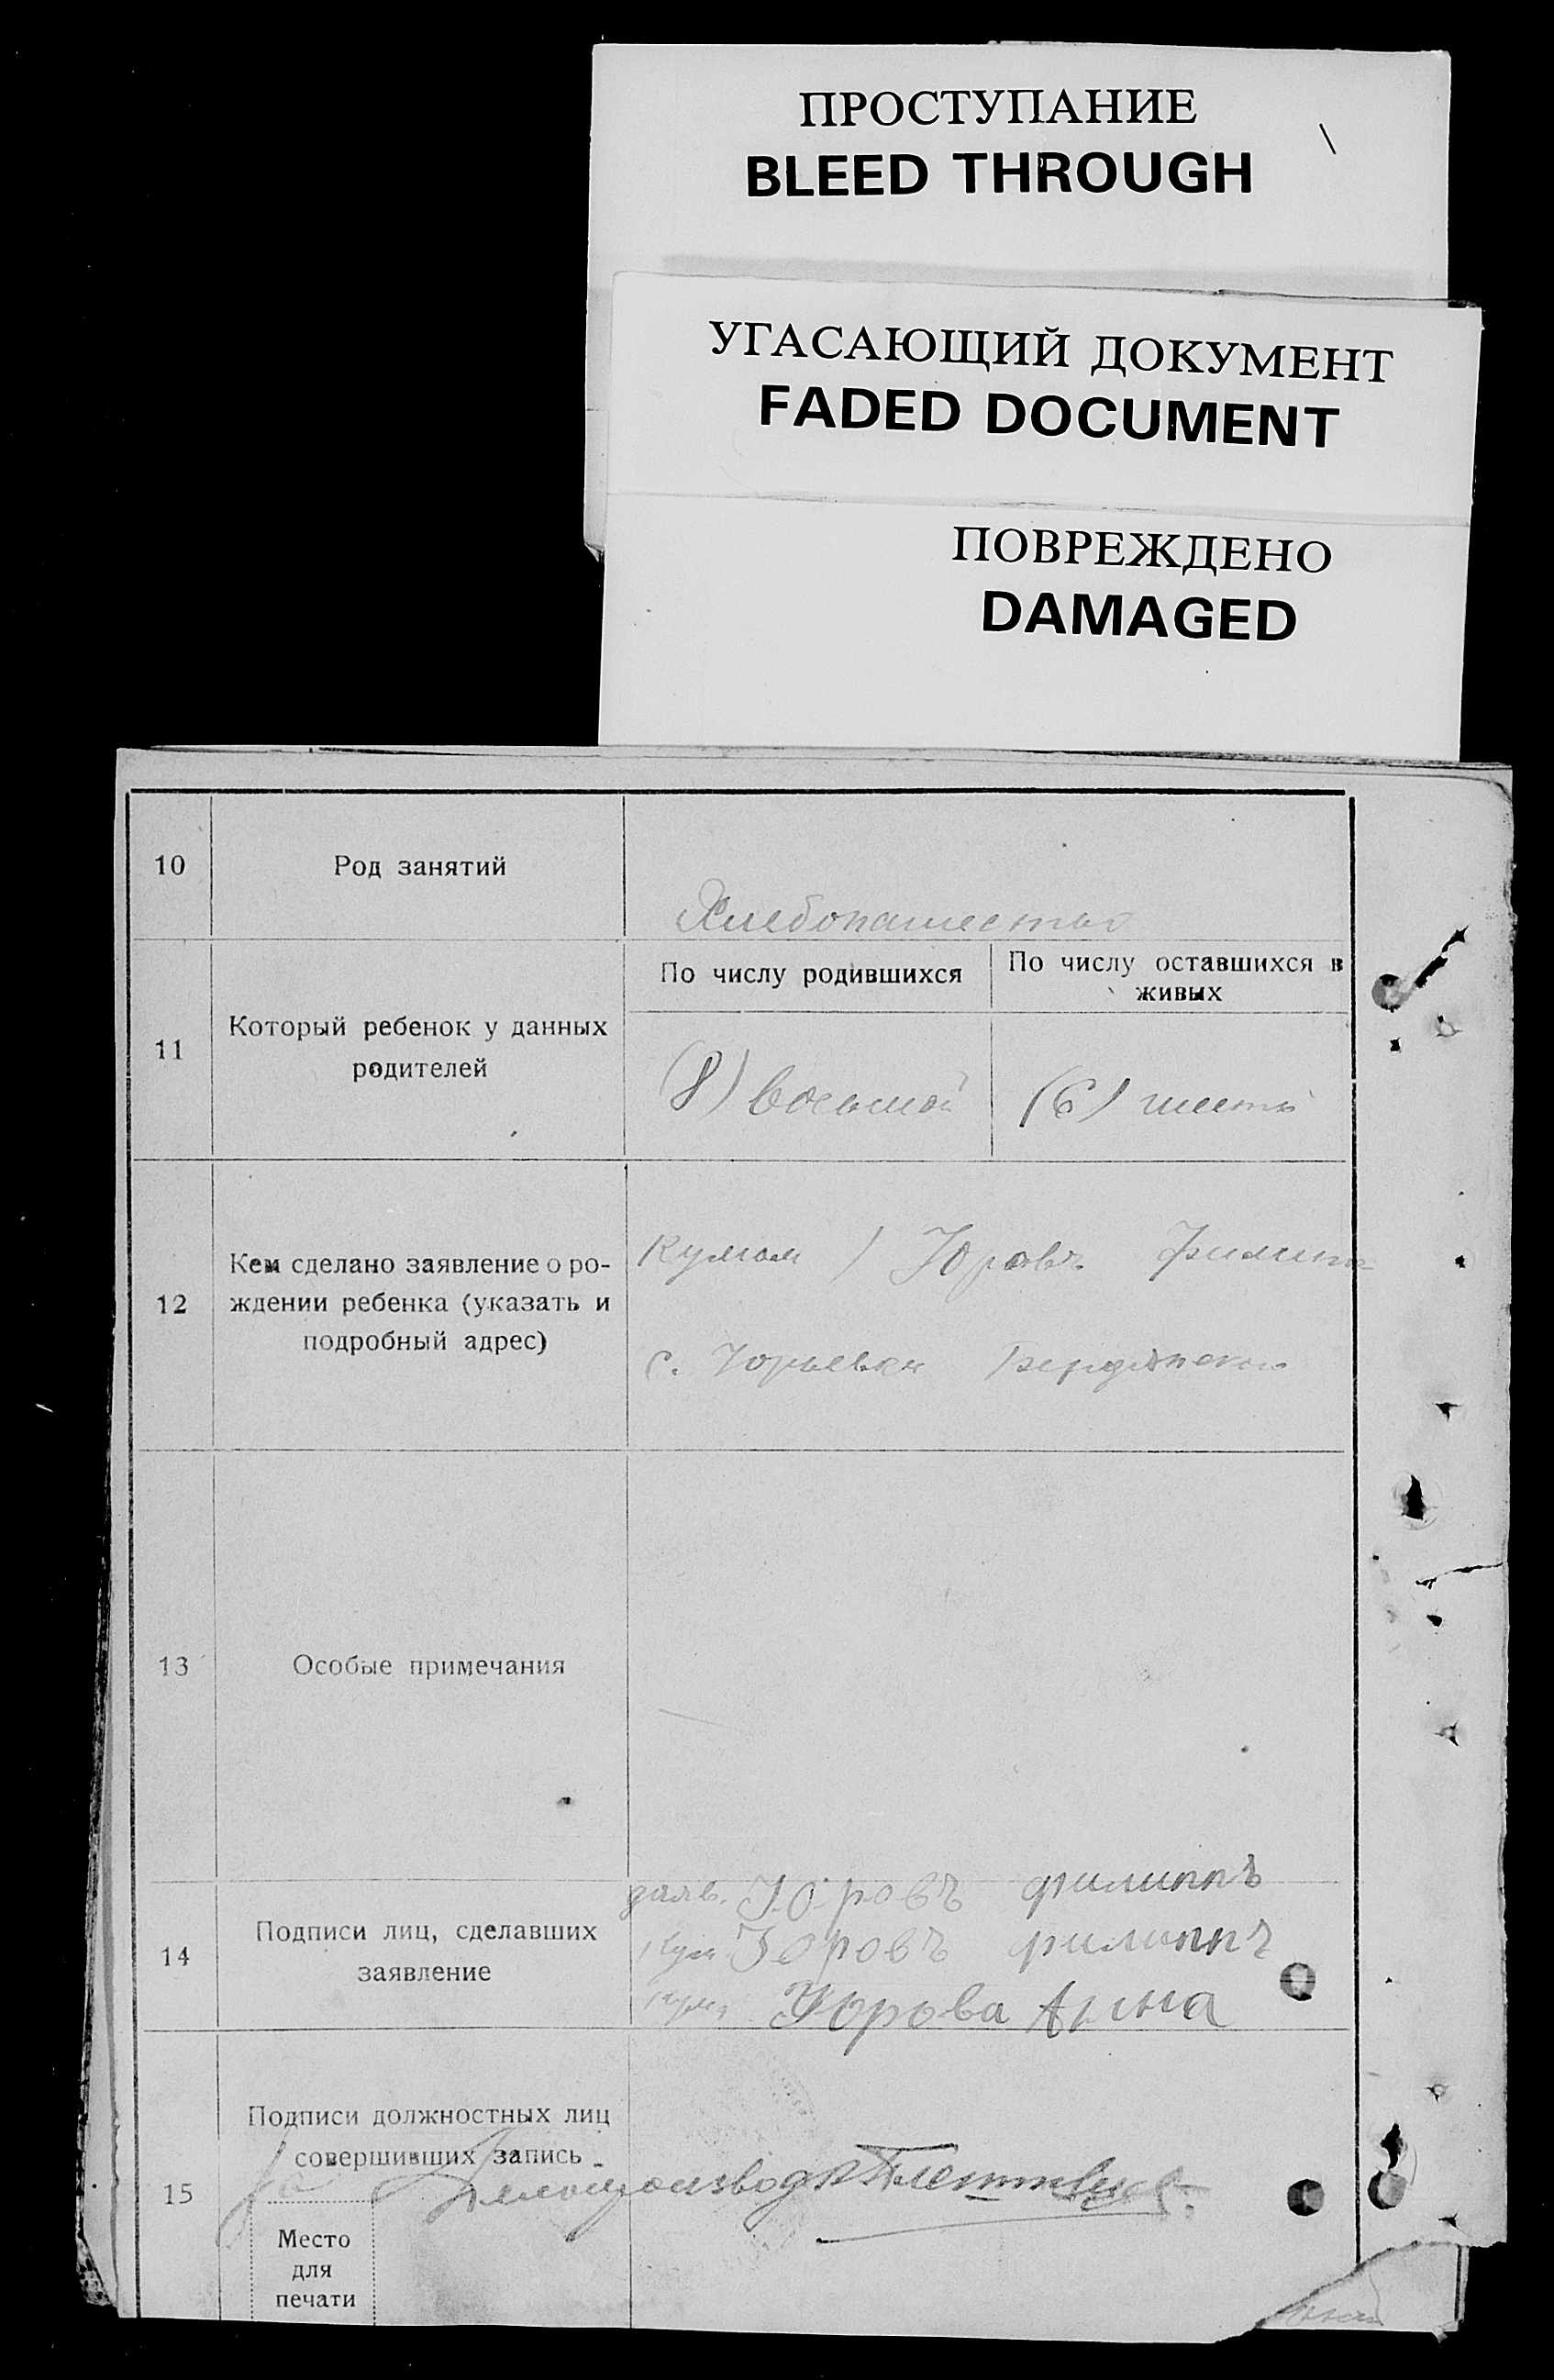 ПРОСТУПАНИЕ
BLEED THROUGH
УГАСАЮЩИЙ ДОКУМЕНТ
FADED DOCUMENT
ПОВРЕЖДЕНО
DAMAGED
10 Род занятий
Хлебопашество
11 Который ребенок у данных
родителей
По числу родившихся
(8) восьмой
По числу оставшихся в
живых
(6)
12 Кем сделано заявление о ро-
ждении ребенка (указать и
подробный адрес)
Кумом Юровъ Филипп
с. Юрьевка
13 Особые примечания
14 Подписи лиц, сделавших
заявление
заяв. Юровъ филиппъ
кум Юровъ филиппъ
кума Юрова Арина
15 Подписи должностных лиц
совершивших запись
Делопроизвод
Место
для
печати